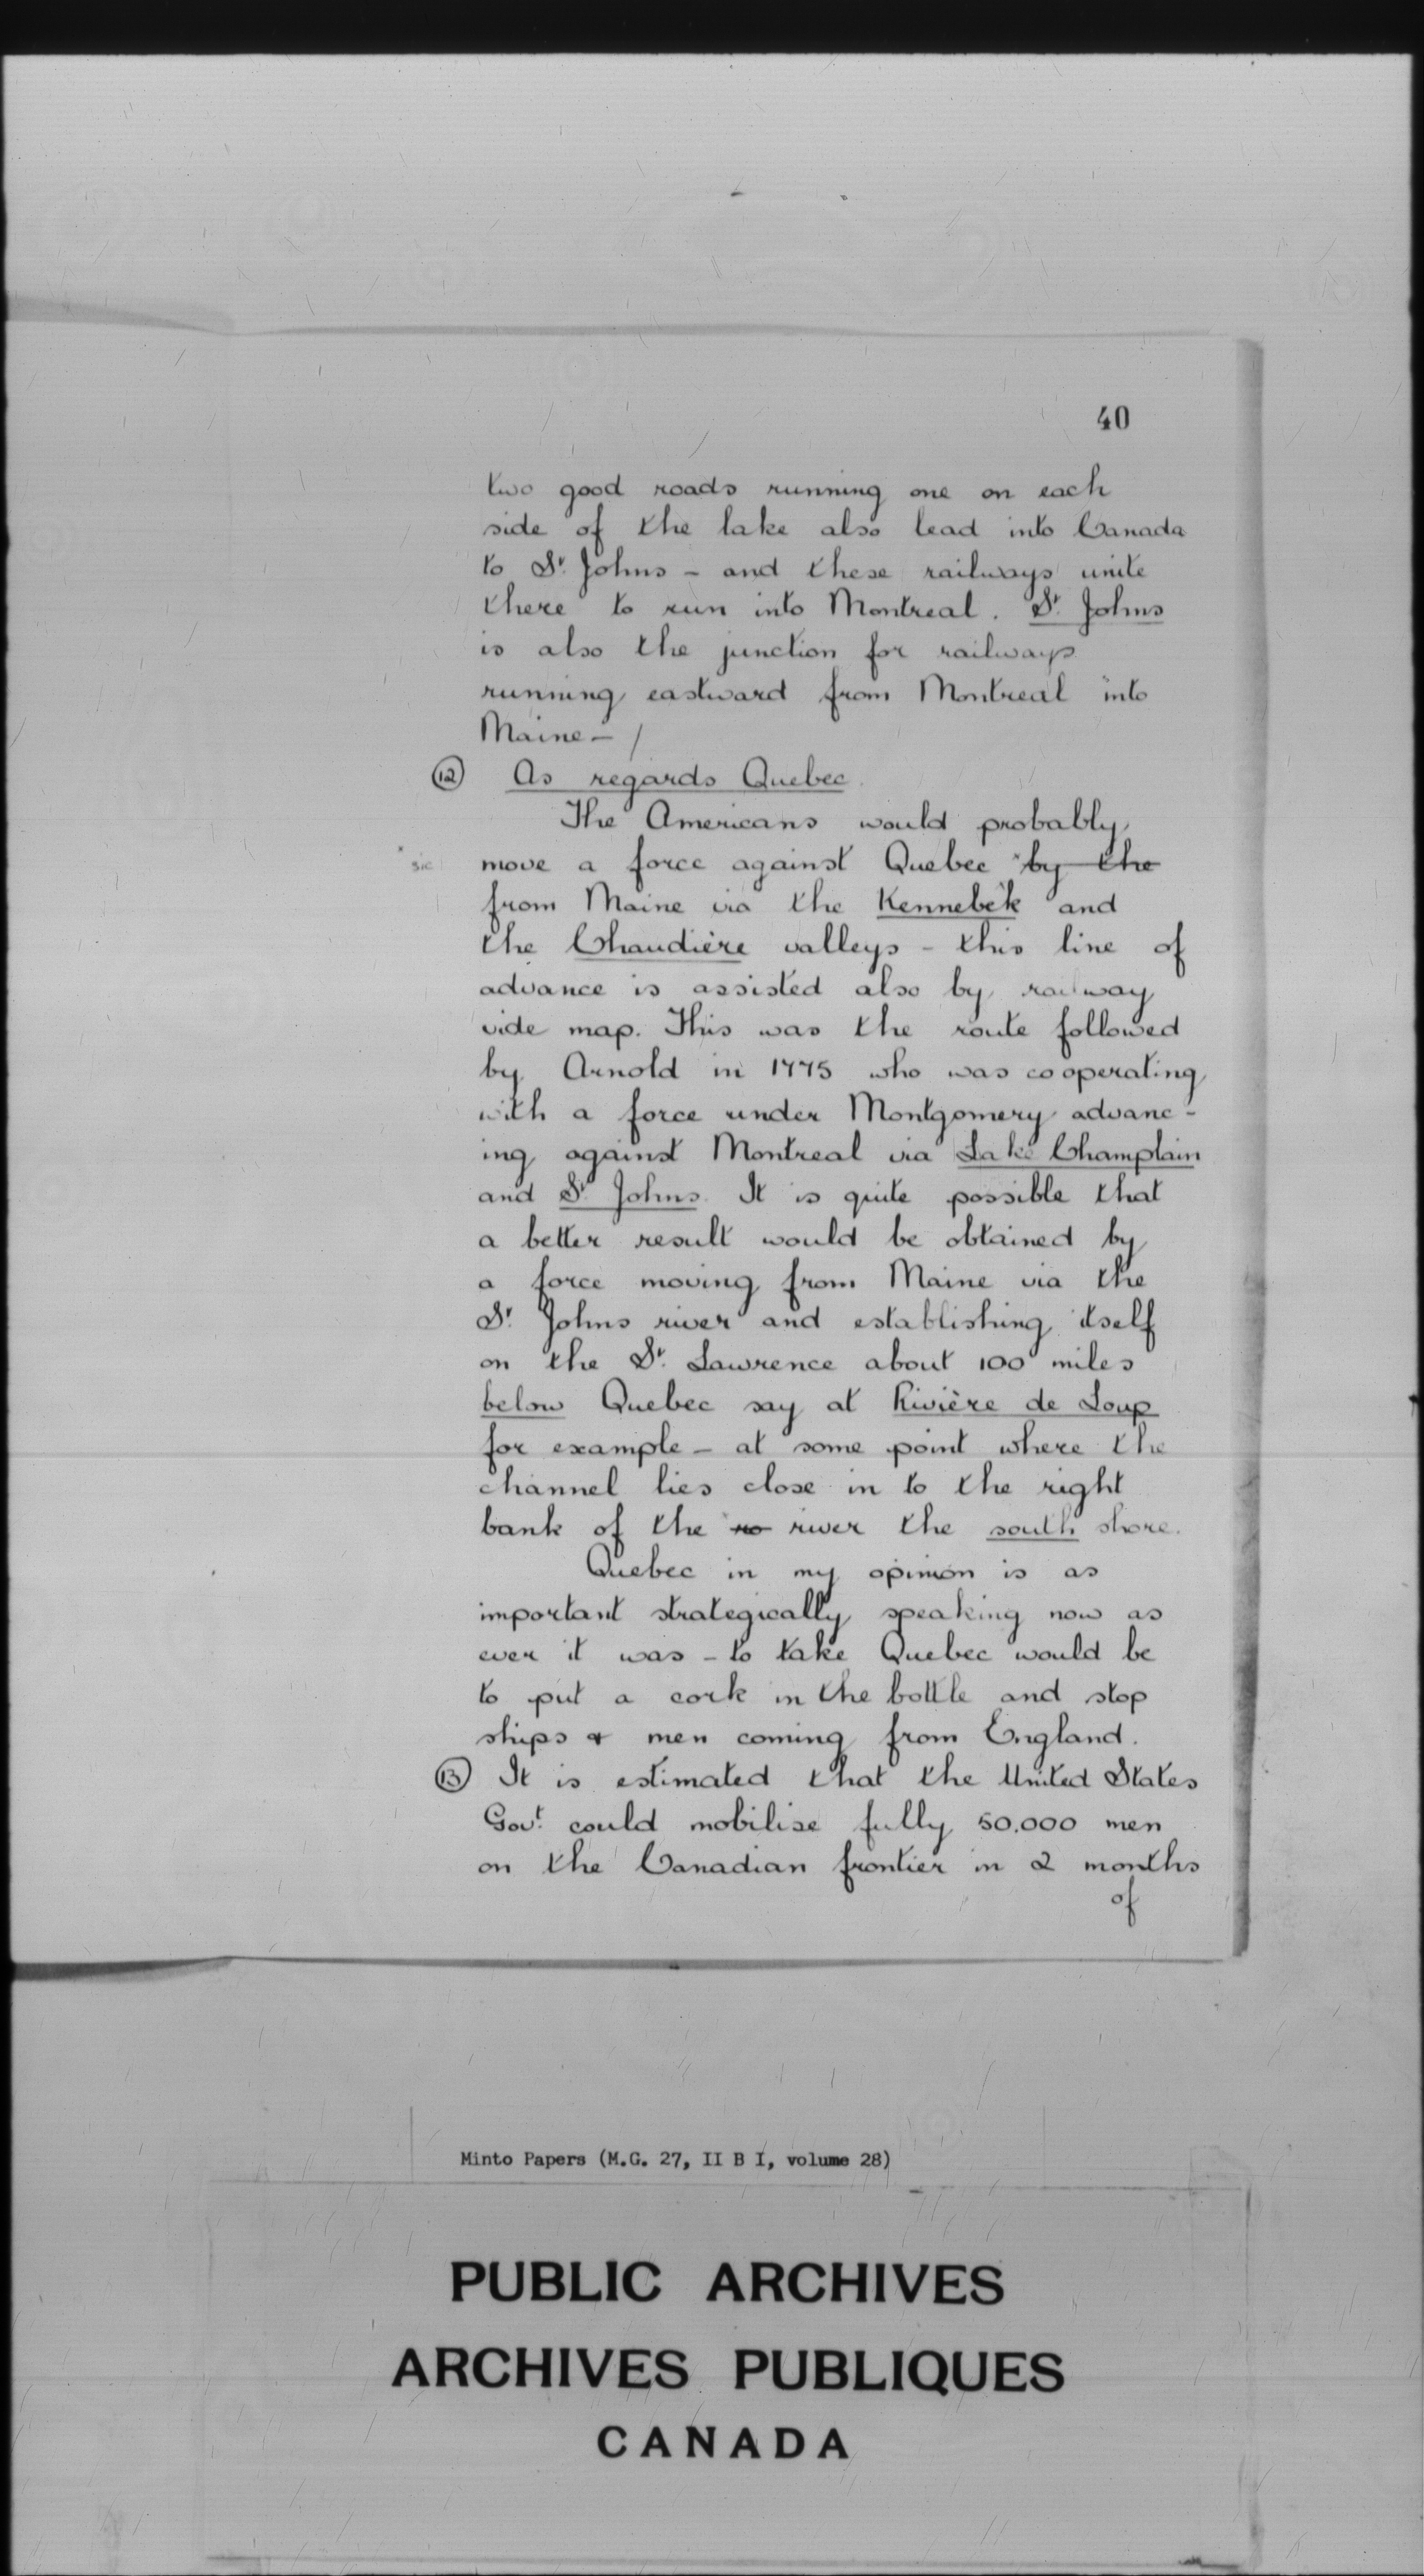 40
two good roads running one on each
side of the lake also lead into Canada
to St. Johns – and these railways unite
there to run into Montreal. St. Johns
is also the junction for railways
running eastward from Montreal into
Maine – /
(12) As regards Quebec.
The Americans would probably
* sic move a force against Quebec * by the
from Maine via the Kennebek and
the Chaudière valleys – this line of
advance is assisted also by railway
vide map. This was the route followed
by Arnold in 1775 who was cooperating
with a force under Montgomery advanc-
ing against Montreal via Lake Champlain
and St. Johns. It is quite possible that
a better result would be obtained by
a force moving from Maine via the
St. Johns river and establishing itself
on the St. Lawrence about 100 miles
below Quebec say at Rivière de Loup
for example – at some point where the
channel lies close in to the right
bank of the ro river the south shore.
Quebec in my opinion is as
important strategically speaking now as
ever it was – to take Quebec would be
to put a cork in the bottle and stop
ships & men coming from England.
(13) It is estimated that the United States
Govt. could mobilise fully 50.000 men
on the Canadian frontier in 2 months
of
Minto Papers (M.G. 27, II B I, volume 28)
PUBLIC ARCHIVES
ARCHIVES PUBLIQUES
CANADA